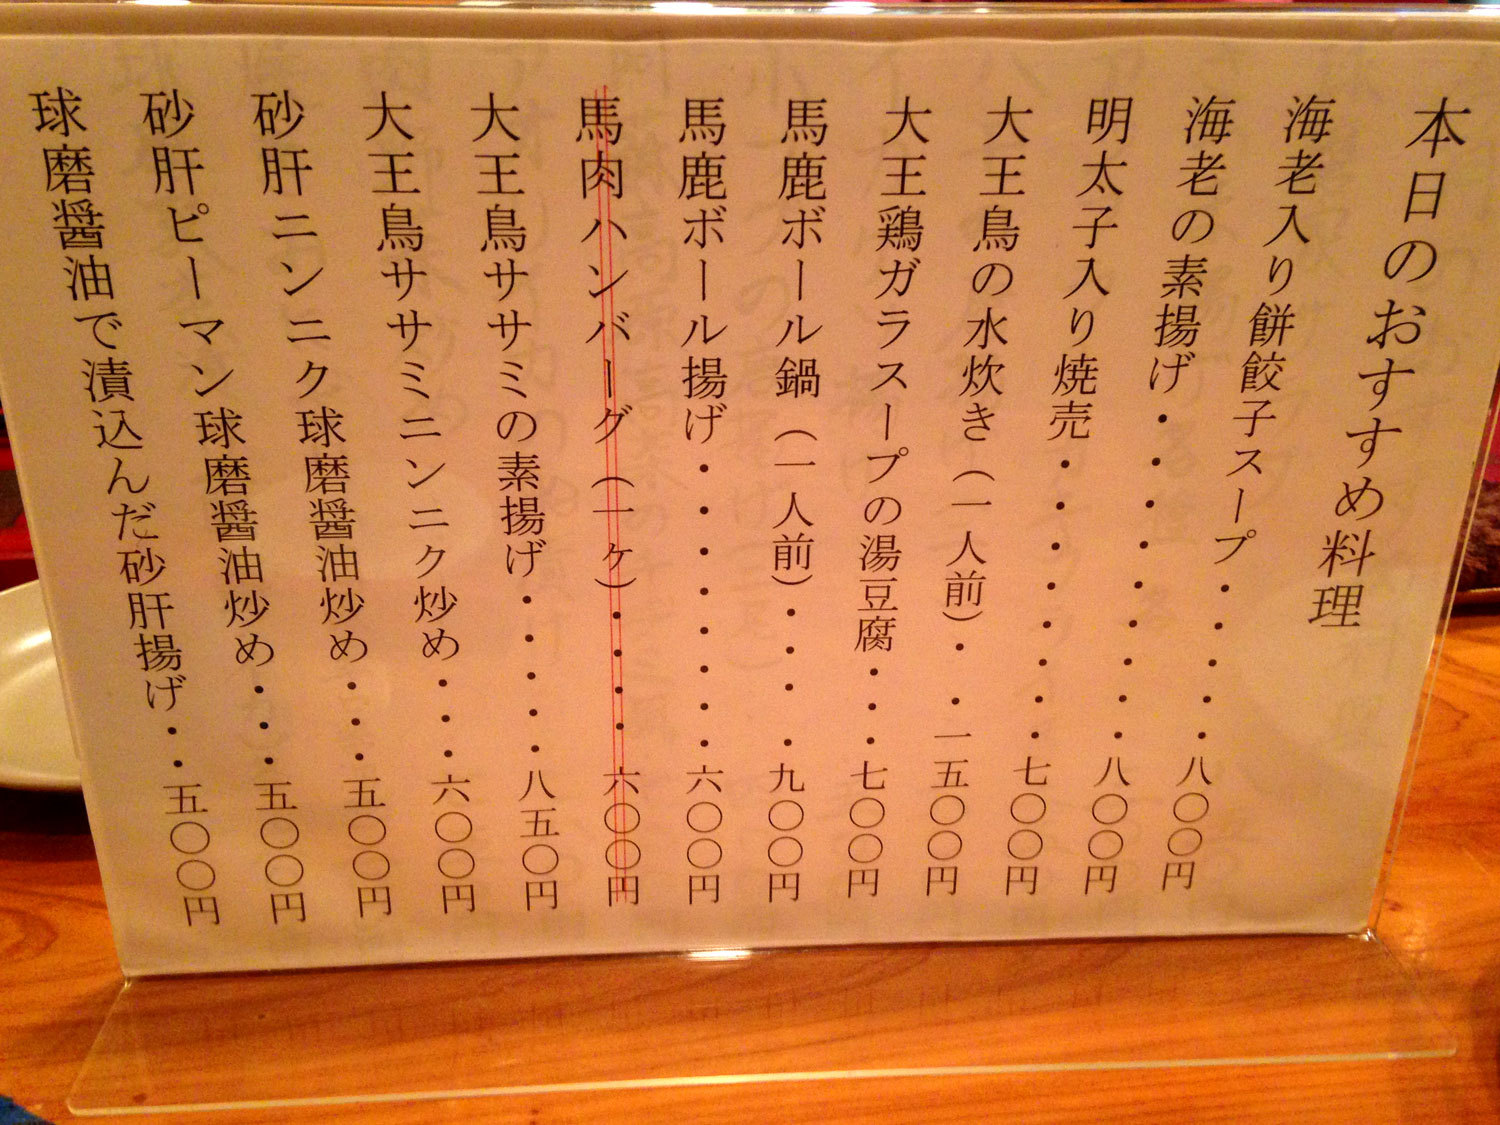 本日のおすすめ料理
海老入り餅餃子スープ・・・・・八〇〇円
海老の素揚げ・・・・・・・・八〇〇円
明太子入り焼売・・・・・・・七〇〇円
大王鳥の水炊き(一人前)・・一五〇〇円
大王鶏ガラスープの湯豆腐・・・七〇〇円
馬鹿ボール鍋(一人前)・・・・九〇〇円
馬鹿ボール揚げ・・・・・・・・六〇〇円
馬肉ハンバーグ(一ヶ)・・・・六〇〇円
大王鳥ササミの素揚げ・・・・・八五〇円
大王鳥ササミニンニク炒め・・・六〇〇円
砂肝ニンニク球磨醤油炒め・・・五〇〇円
砂肝ピーマン球磨醤油炒め・・・五〇〇円
球磨醤油で漬込んだ砂肝揚げ・・五〇〇円